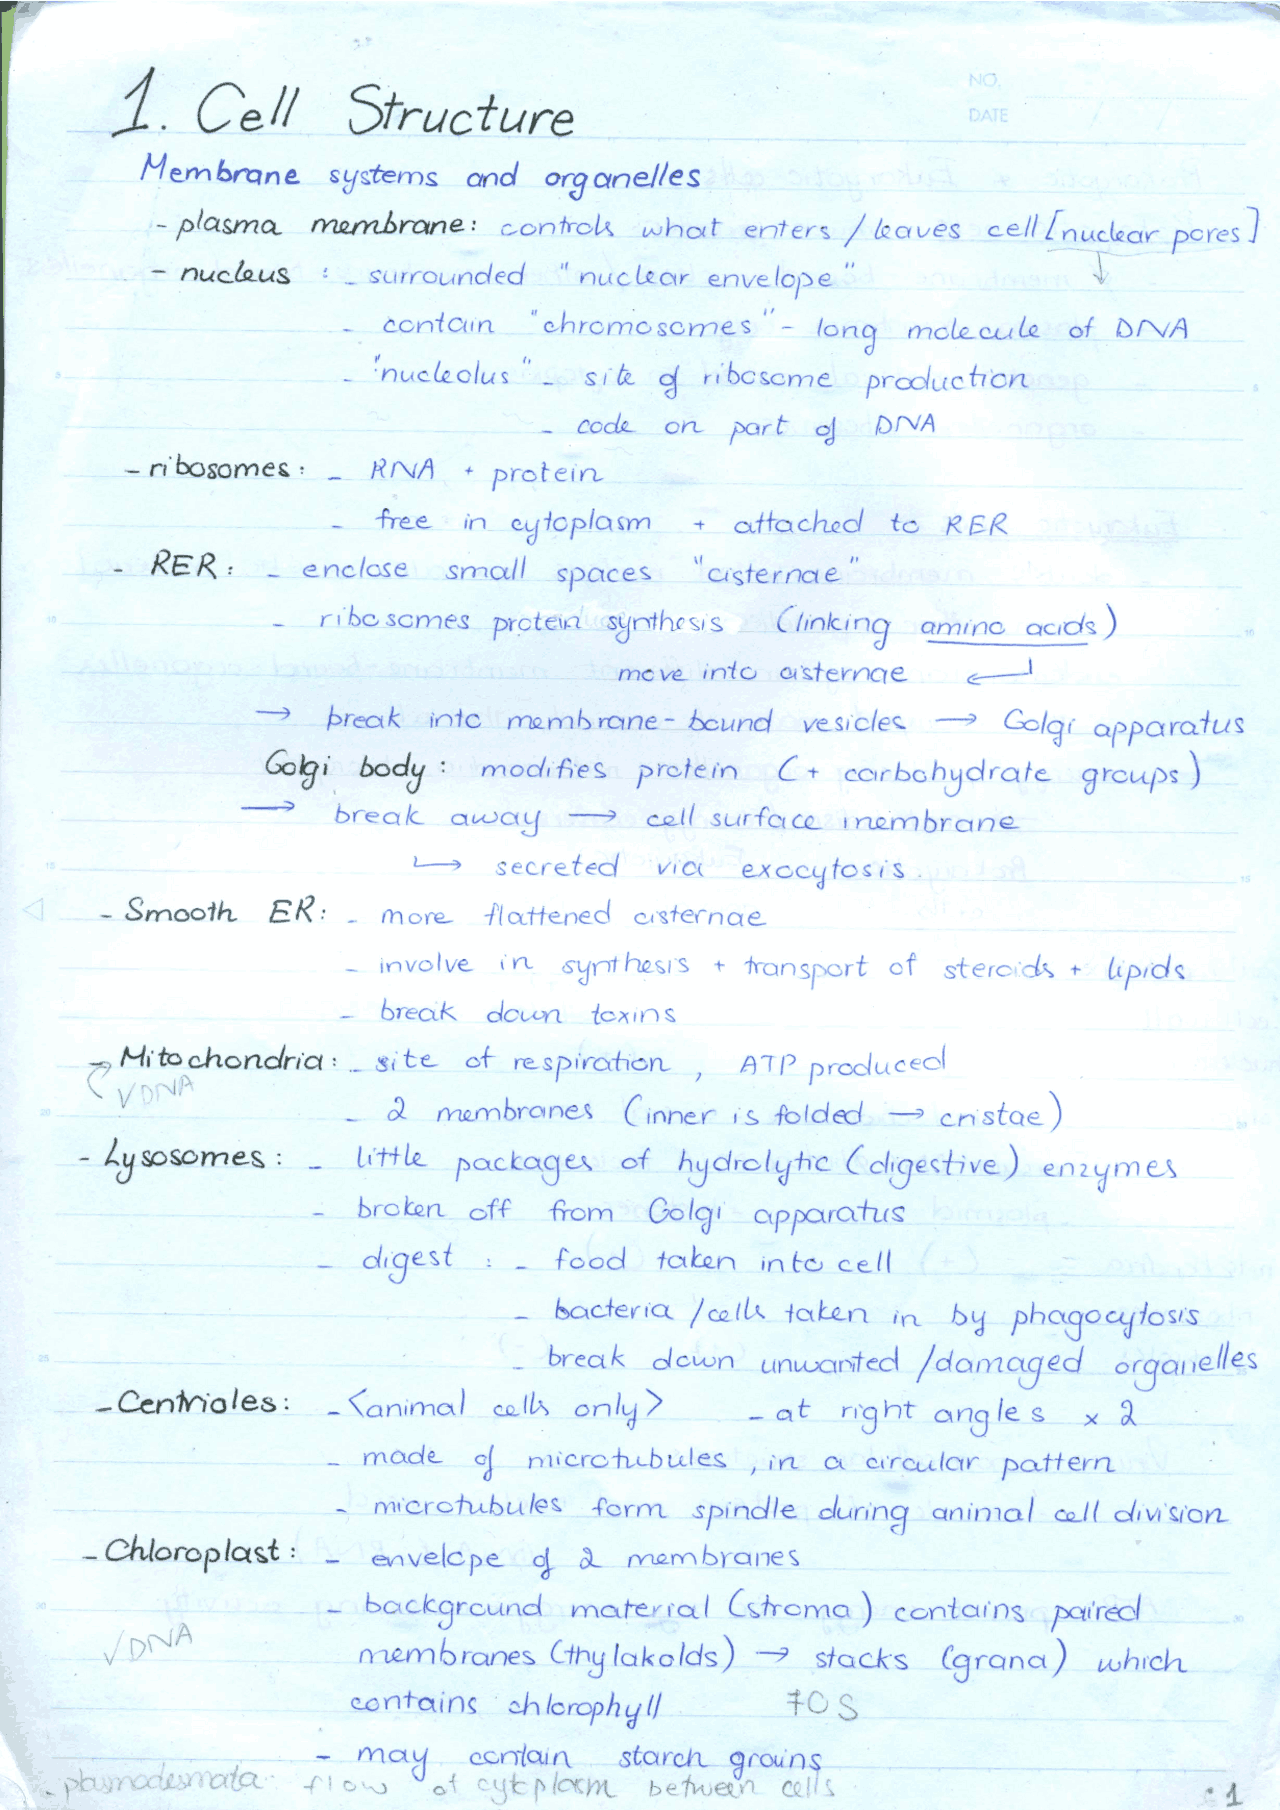 NO.
DATE
1. Cell Structure
Membrane systems and organelles
- plasma membrane: controls what enters / leaves cell [nuclear pores]
- nucleus : - surrounded "nuclear envelope" ↓
- contain "chromosomes" - long molecule of DNA
- "nucleolus" - site of ribosome production
- code on part of DNA
- ribosomes: - RNA + protein
- free in cytoplasm + attached to RER
- RER: - enclose small spaces "cisternae"
- ribosomes protein synthesis (linking amino acids)
move into cisternae ↵
→ break into membrane-bound vesicles → Golgi apparatus
Golgi body : modifies protein (+ carbohydrate groups)
→ break away → cell surface membrane
↳ secreted via exocytosis.
- Smooth ER: - more flattened cisternae
- involve in synthesis + transport of steroids + lipids
- break down toxins
- Mitochondria: - site of respiration, ATP produced
√DNA
- 2 membranes (inner is folded → cristae)
- Lysosomes: - little packages of hydrolytic (digestive) enzymes
- broken off from Golgi apparatus
- digest : - food taken into cell
- bacteria /cells taken in by phagocytosis
- break down unwanted /damaged organelles
- Centrioles: - <animal cells only> - at right angles x 2
- made of microtubules, in a circular pattern
- microtubules form spindle during animal cell division
- Chloroplast: - envelope of 2 membranes
- background material (stroma) contains paired
√DNA
membranes (thylakoids) → stacks (grana) which
contains chlorophyll 70S
- may contain starch grains
- plasmodesmata: flow of cytoplasm between cells
1